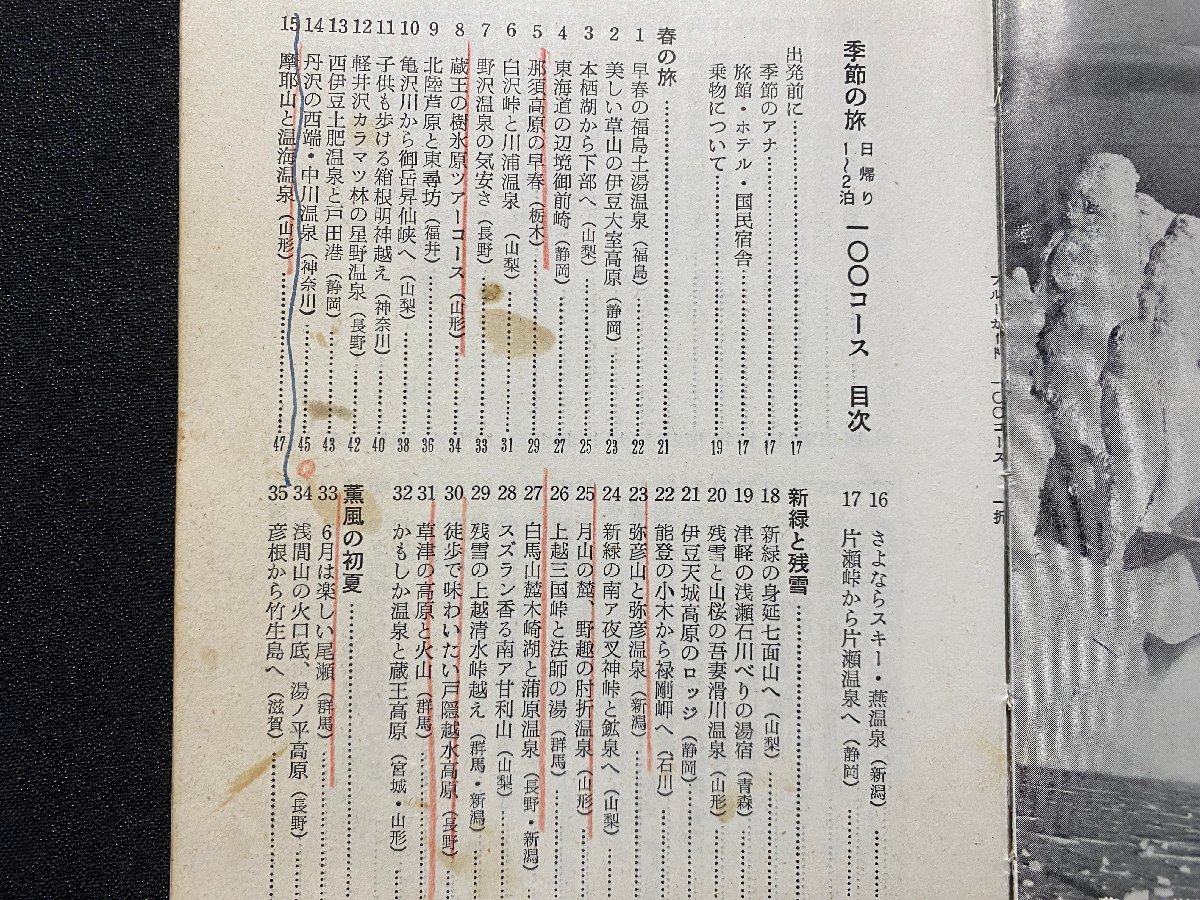 季節の旅 日帰り 1〜2泊 一〇〇コース 目次
出発前に 17
季節のアナ 17
旅館・ホテル・国民宿舎 17
乗物について 19
春の旅 21
1 早春の福島土湯温泉(福島) 22
2 美しい草山の伊豆大室高原(静岡) 23
3 本栖湖から下部へ(山梨) 25
4 東海道の辺境御前崎(静岡) 27
5 那須高原の早春(栃木) 29
6 白沢峠と川浦温泉(山梨) 31
7 野沢温泉の気安さ(長野) 33
8 蔵王の樹氷原ツアーコース(山形) 34
9 北陸芦原と東尋坊(福井) 36
10 亀沢川から御岳昇仙峡へ(山梨) 38
11 子供も歩ける箱根明神越え(神奈川) 40
12 軽井沢カラマツ林の星野温泉(長野) 42
13 西伊豆土肥温泉と戸田港(静岡) 43
14 丹沢の西端・中川温泉(神奈川) 45
15 摩耶山と温海温泉(山形) 47
16 さよならスキー・燕温泉(新潟)
17 片瀬峠から片瀬温泉へ(静岡)
新緑と残雪
18 新緑の身延七面山へ(山梨)
19 津軽の浅瀬石川べりの湯宿(青森)
20 残雪と山桜の吾妻滑川温泉(山形)
21 伊豆天城高原のロッジ(静岡)
22 能登の小木から禄剛岬へ(石川)
23 弥彦山と弥彦温泉(新潟)
24 新緑の南ア夜叉神峠と鉱泉へ(山梨)
25 月山の麓、野趣の肘折温泉(山形)
26 上越三国峠と法師の湯(群馬)
27 白馬山麓木崎湖と蒲原温泉(長野・新潟)
28 スズラン香る南ア甘利山(山梨)
29 残雪の上越清水峠越え(群馬・新潟)
30 徒歩で味わいたい戸隠越水高原(長野)
31 草津の高原と火山(群馬)
32 かもしか温泉と蔵王高原(宮城・山形)
薫風の初夏
33 6月は楽しい尾瀬(群馬)
34 浅間山の火口底、湯ノ平高原(長野)
35 彦根から竹生島へ(滋賀)
ブルーガイド 一〇〇コース 一折